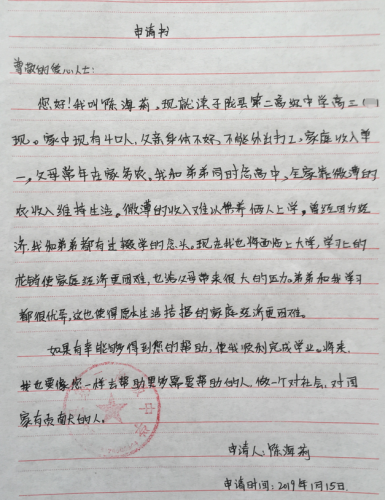 申请书
尊敬的爱心人士:
您好!我叫陈海莉。现就读于成县第二高级中学高三
现。家中现有4口人,父亲身体不好,不能外出打工,家庭收入单
一。父母常年在家务农。我和弟弟同时念高中,全家靠微薄的
农收入维持生活。微薄的收入难以供养俩人上学。曾经因为经
济,我和弟弟都有过辍学的念头。现在我也将面临上大学,学习上的
花销使家庭经济更困难,也给父母带来很大的压力。弟弟和我学习
都很优异,这也使得原本生活拮据的家庭经济更困难。
如果有幸能够得到您的帮助,使我顺利完成学业。将来,
我也要像您一样去帮助更多需要帮助的人,做一个对社会,对国
家有贡献的人。
申请人:陈海莉
申请时间:2019年1月15日